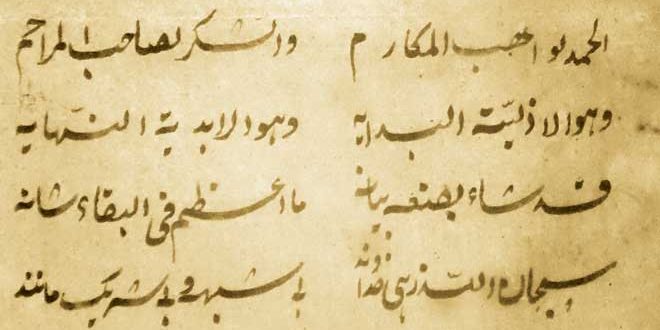 الحمد لواهب المكارم والشكر لصاحب المراحم
وهو الازليّة البدايه وهو الابدية النّهايه
قد شاء بصنعه بيانه ما اعظم فى البقاء شانه
سبحان الله زهى خداوند بى شبه و بى شريك مانند